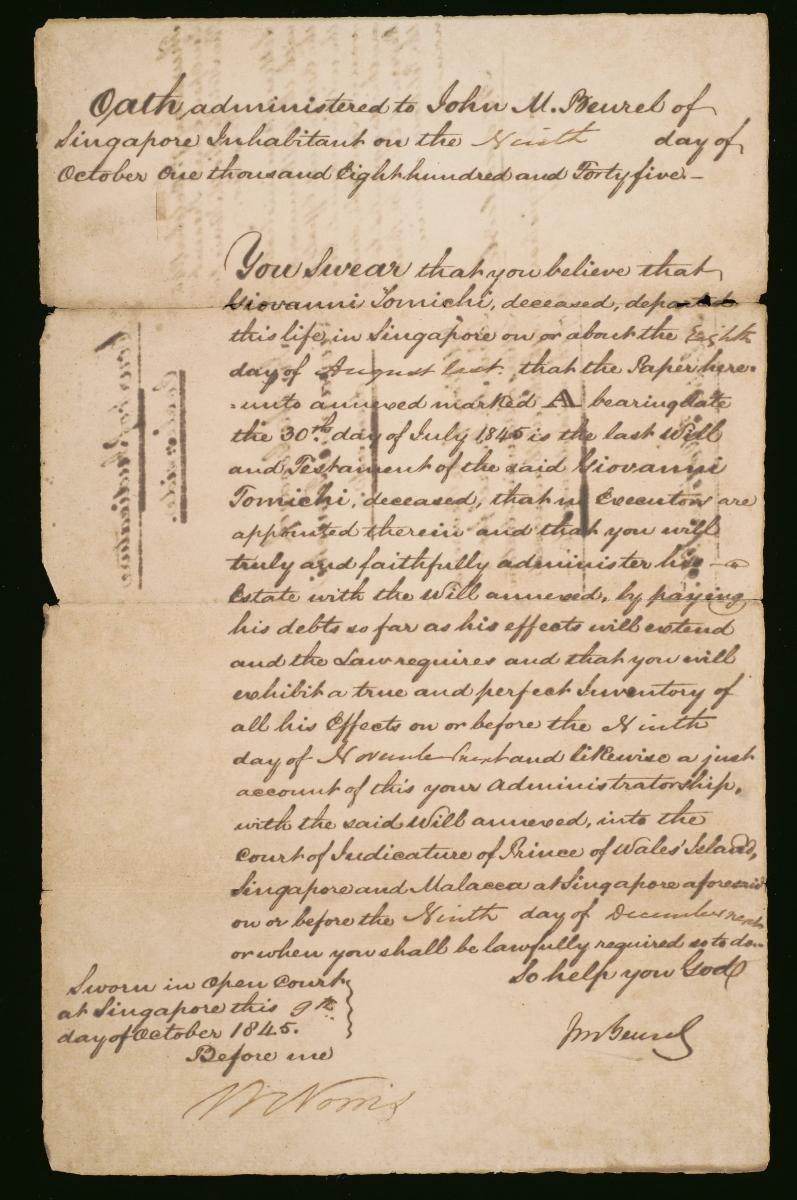 Oath administered to John M. Beurel of
Singapore Inhabitant on the Ninth day of
October One thousand Eight hundred and Forty five. —
You Swear that you believe that
Giovanni Tomichi, deceased, departed
this life, in Singapore on or about the Eighth
day of August last, that the Paper here-
-unto annexed marked A bearing date
the 30th day of July 1845 is the last Will
and Testament of the said Giovanni
Tomichi, deceased, that no Executors are
appointed therein and that you will
truly and faithfully administer his
Estate with the Will annexed, by paying
his debts so far as his effects will extend
and the Law requires and that you will
exhibit a true and perfect Inventory of
all his Effects on or before the Ninth
day of November next and likewise a just
account of this your administratorship,
with the said Will annexed, into the
Court of Judicature of Prince of Wales' Island,
Singapore and Malacca at Singapore aforesaid
on or before the Ninth day of December next
or when you shall be lawfully required so to do—
So help you God
Sworn in Open Court
at Singapore this 9th
day of October 1845.
Before me
Jm Beurel
Wm Norris